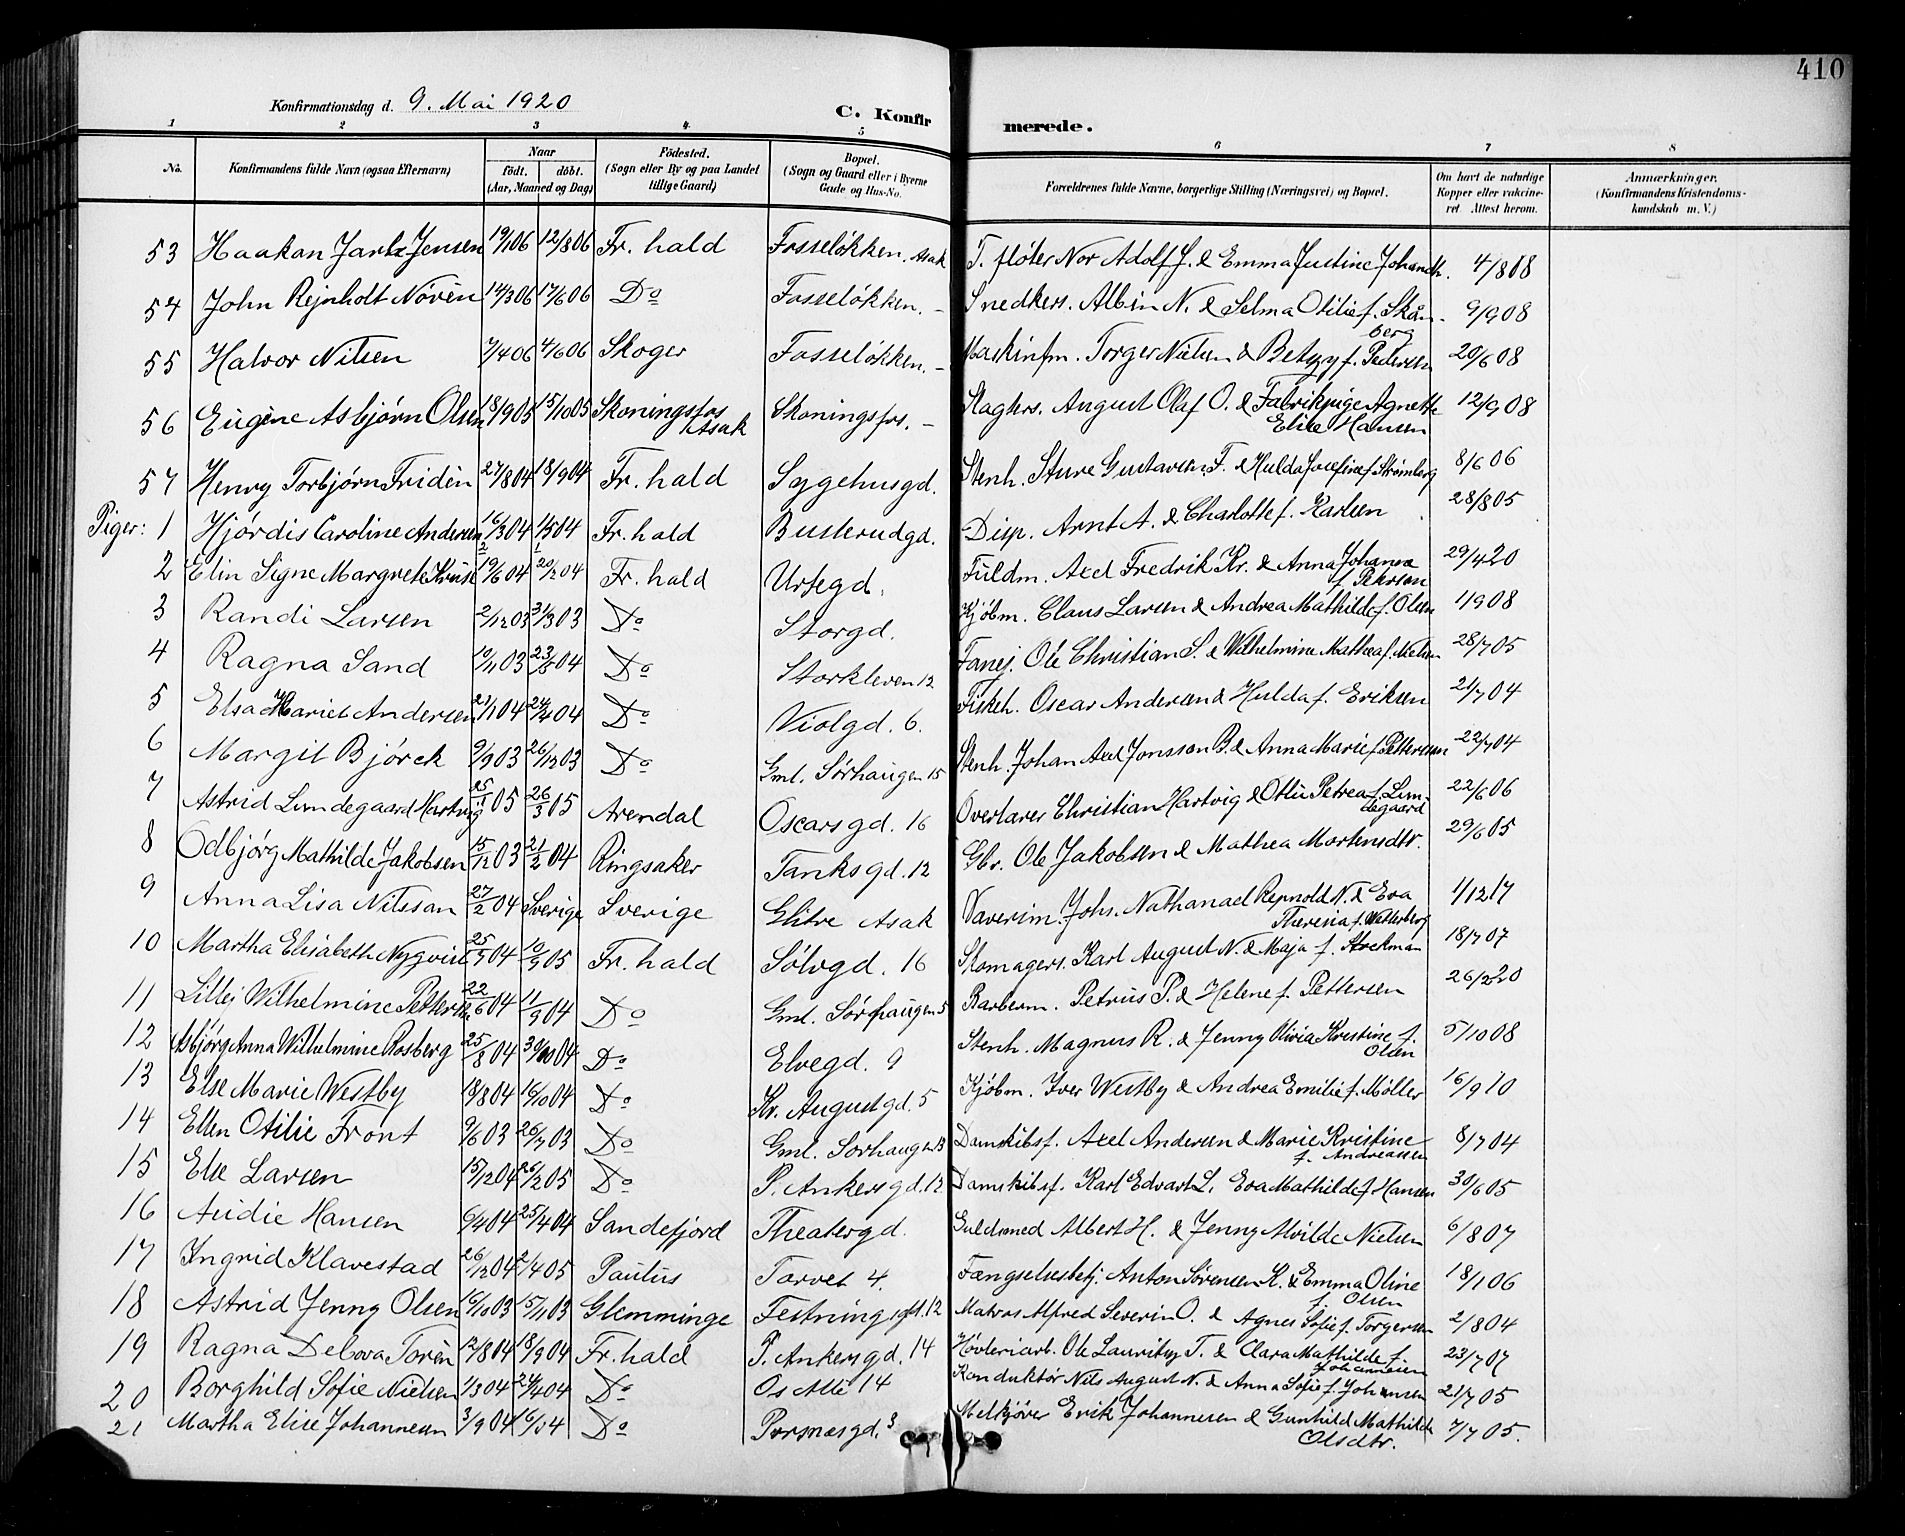 410
Konfirmationsdag d. 9. Mai 1920
C. Konfirmerede.
1 2 3 4 5 6 7 8
No. Konfirmandens fulde Navn (ogsaa Efternavn) Naar født. døbt. (Aar, Maaned og Dag) Födested. (Sogn eller By og paa Landet tillige Gaard) Bopæl. (Sogn og Gaard eller i Byerne Gade og Hus-No. Forældrenes fulde Navne, borgerlige Stilling (Næringsvei) og Bopæl. Om havt de naturlige Kopper eller vaccineret. Attest herom. Anmærkninger. (Konfirmandens Kristendomskundskab m. V.)
53 Haakan Jarle Jensen 19/1 06 12/8 06 Fr. hald Fosseløkken. Asak T. fløter Nor Adolf J. & Emma Justine Johansdt. 4/8 08
54 John Rejnholdt Norén 14/3 06 17/6 06 Do Fosseløkken. - Snedkers. Albin N. & Selma Otilie f. Skånberg 9/9 08
55 Halvor Nilsen 7/4 06 4/6 06 Skoger Fosseløkken. - Maskinfm. Torger Nielsen & Betzy f. Pedersen 20/6 08
56 Eugene Asbjørn Olsen 18/9 05 15/10 05 Skoningsfos Asak Skoningsfos. - Slagters. August Olaf O. & Fabrikpige Agnette Elise Hansen 12/9 08
57 Henry Torbjørn Fridén 27/8 04 18/9 04 Fr. hald Sygehusgd. Stenh. Sture Gustavsen F. & Hulda Josefine f. Strømberg 8/6 06
Piger: 1 Hjørdis Caroline Andersen 16/3 04 1/5 04 Fr. hald Busterudgd. Disp. Arnt A. & Charlotte f. Karlsen 28/8 05
2 Elin Signe Margrete Kruse 19/6 04 20/2 04 Fr. hald Urtegd. Fuldm. Axel Fredrik Kr. & Anna Johanna f. Peterson 29/4 20
3 Randi Larsen 2/12 03 31/3 03 Do Storgd. Kjøbm. Claus Larsen & Andrea Mathilde f. Olsen 1/9 08
4 Ragna Sand 10/11 03 23/5 04 Do Storkleven 12 Ole Christian S. & Wilhelmine Mathea f. Nielsen 28/7 05
5 Elsa Hariet Andersen 21/1 04 24/4 04 Do Violgd. 6. Fiskeh. Oscar Andersen & Hulda f. Eriksen 21/7 04
6 Margit Bjørck 9/9 03 26/12 03 Do Gml. Sørhaugen 15 Stenh. Johan Axel Jonsson B. & Anna Marie f. Pettersen 22/7 04
7 Astrid Lundegaard Hartvig 25/1 05 26/3 05 Arendal Oscarsgd. 16 Overlærer Christian Hartvig & Ottli Petrea f. Lundegaard 22/6 06
8 Odbjørg Mathilde Jakobsen 15/12 03 21/2 04 Ringsaker Tanksgd. 12 Gbr. Ole Jakobsen & Mathea Mortensdtr. 29/6 05
9 Anna Lisa Nilsson 27/2 04 Sverige Sverige Glitre Asak Væverim. Johs. Nathanael Reynold N. & Eva Theresia f. Wetterberg 1/12 17
10 Martha Elisabeth Nyqvist 25/9 04 10/9 05 Fr. hald Sølvgd. 16 Skomagers. Karl August N. & Maja f. Strekman 18/7 07
11 Lillej Wilhelmine Pettersen 22/6 04 11/9 04 Do Gml. Sørhaugen 5 Barberm. Petrus P. & Helene f. Pettersen 26/2 20
12 Asbjørg Anna Wilhelmine Rosberg 25/8 04 30/10 04 Do Elvegd. 9 Stenh. Magnus R. & Jenny Olivia Kristine f. Olsen 5/10 08
13 Else Marie Westby 18/8 04 16/10 04 Do Kr. Augustgd. 5 Kjøbm. Iver Westby & Andrea Emilie f. Møller 16/9 10
14 Ellen Otilie Front 9/6 03 26/7 03 Do Gml. Sørhaugen 13 Damskibsf. Axel Andersen & Marie Kristine f. Andreassen 8/7 04
15 Else Larsen 15/12 04 25/2 05 Do P. Ankersgd. 12 Damskibsf. Karl Edvart L. Eva Mathilde f. Hansen 30/6 05
16 Audie Hansen 6/2 04 25/4 04 Sandefjord Theatergd. Guldsmed Albert H. & Jenny Alvilde Nielsen 6/8 07
17 Ingrid Klavestad 26/12 04 2/4 05 Paulus Torvet 4. Fængselsbetj. Anton Sørensen K. & Emma Oline f. Olsen 18/1 06
18 Astrid Jenny Olsen 16/10 03 15/11 03 Glemminge Festningsgd. 12 Matros Alfred Severin O. & Agnes Sofie f. Torgersen 2/8 04
19 Ragna Debora Torén 12/8 04 18/9 04 Fr. hald P. Ankersgd. 14 Høvleriarb. Ole Lauritz T. & Clara Mathilde f. Johannesen 23/7 07
20 Borghild Sofie Nielsen 1/3 04 24/4 04 Do Os Alle 14 Konduktør Nils August N. & Anna Sofie f. Johansen 21/7 05
21 Martha Elise Johannesen 3/9 04 Do Porsnæsgd. 3 Melkjører Erik Johannesen & Gunhild Mathilde Olsdtr. 7/7 05.